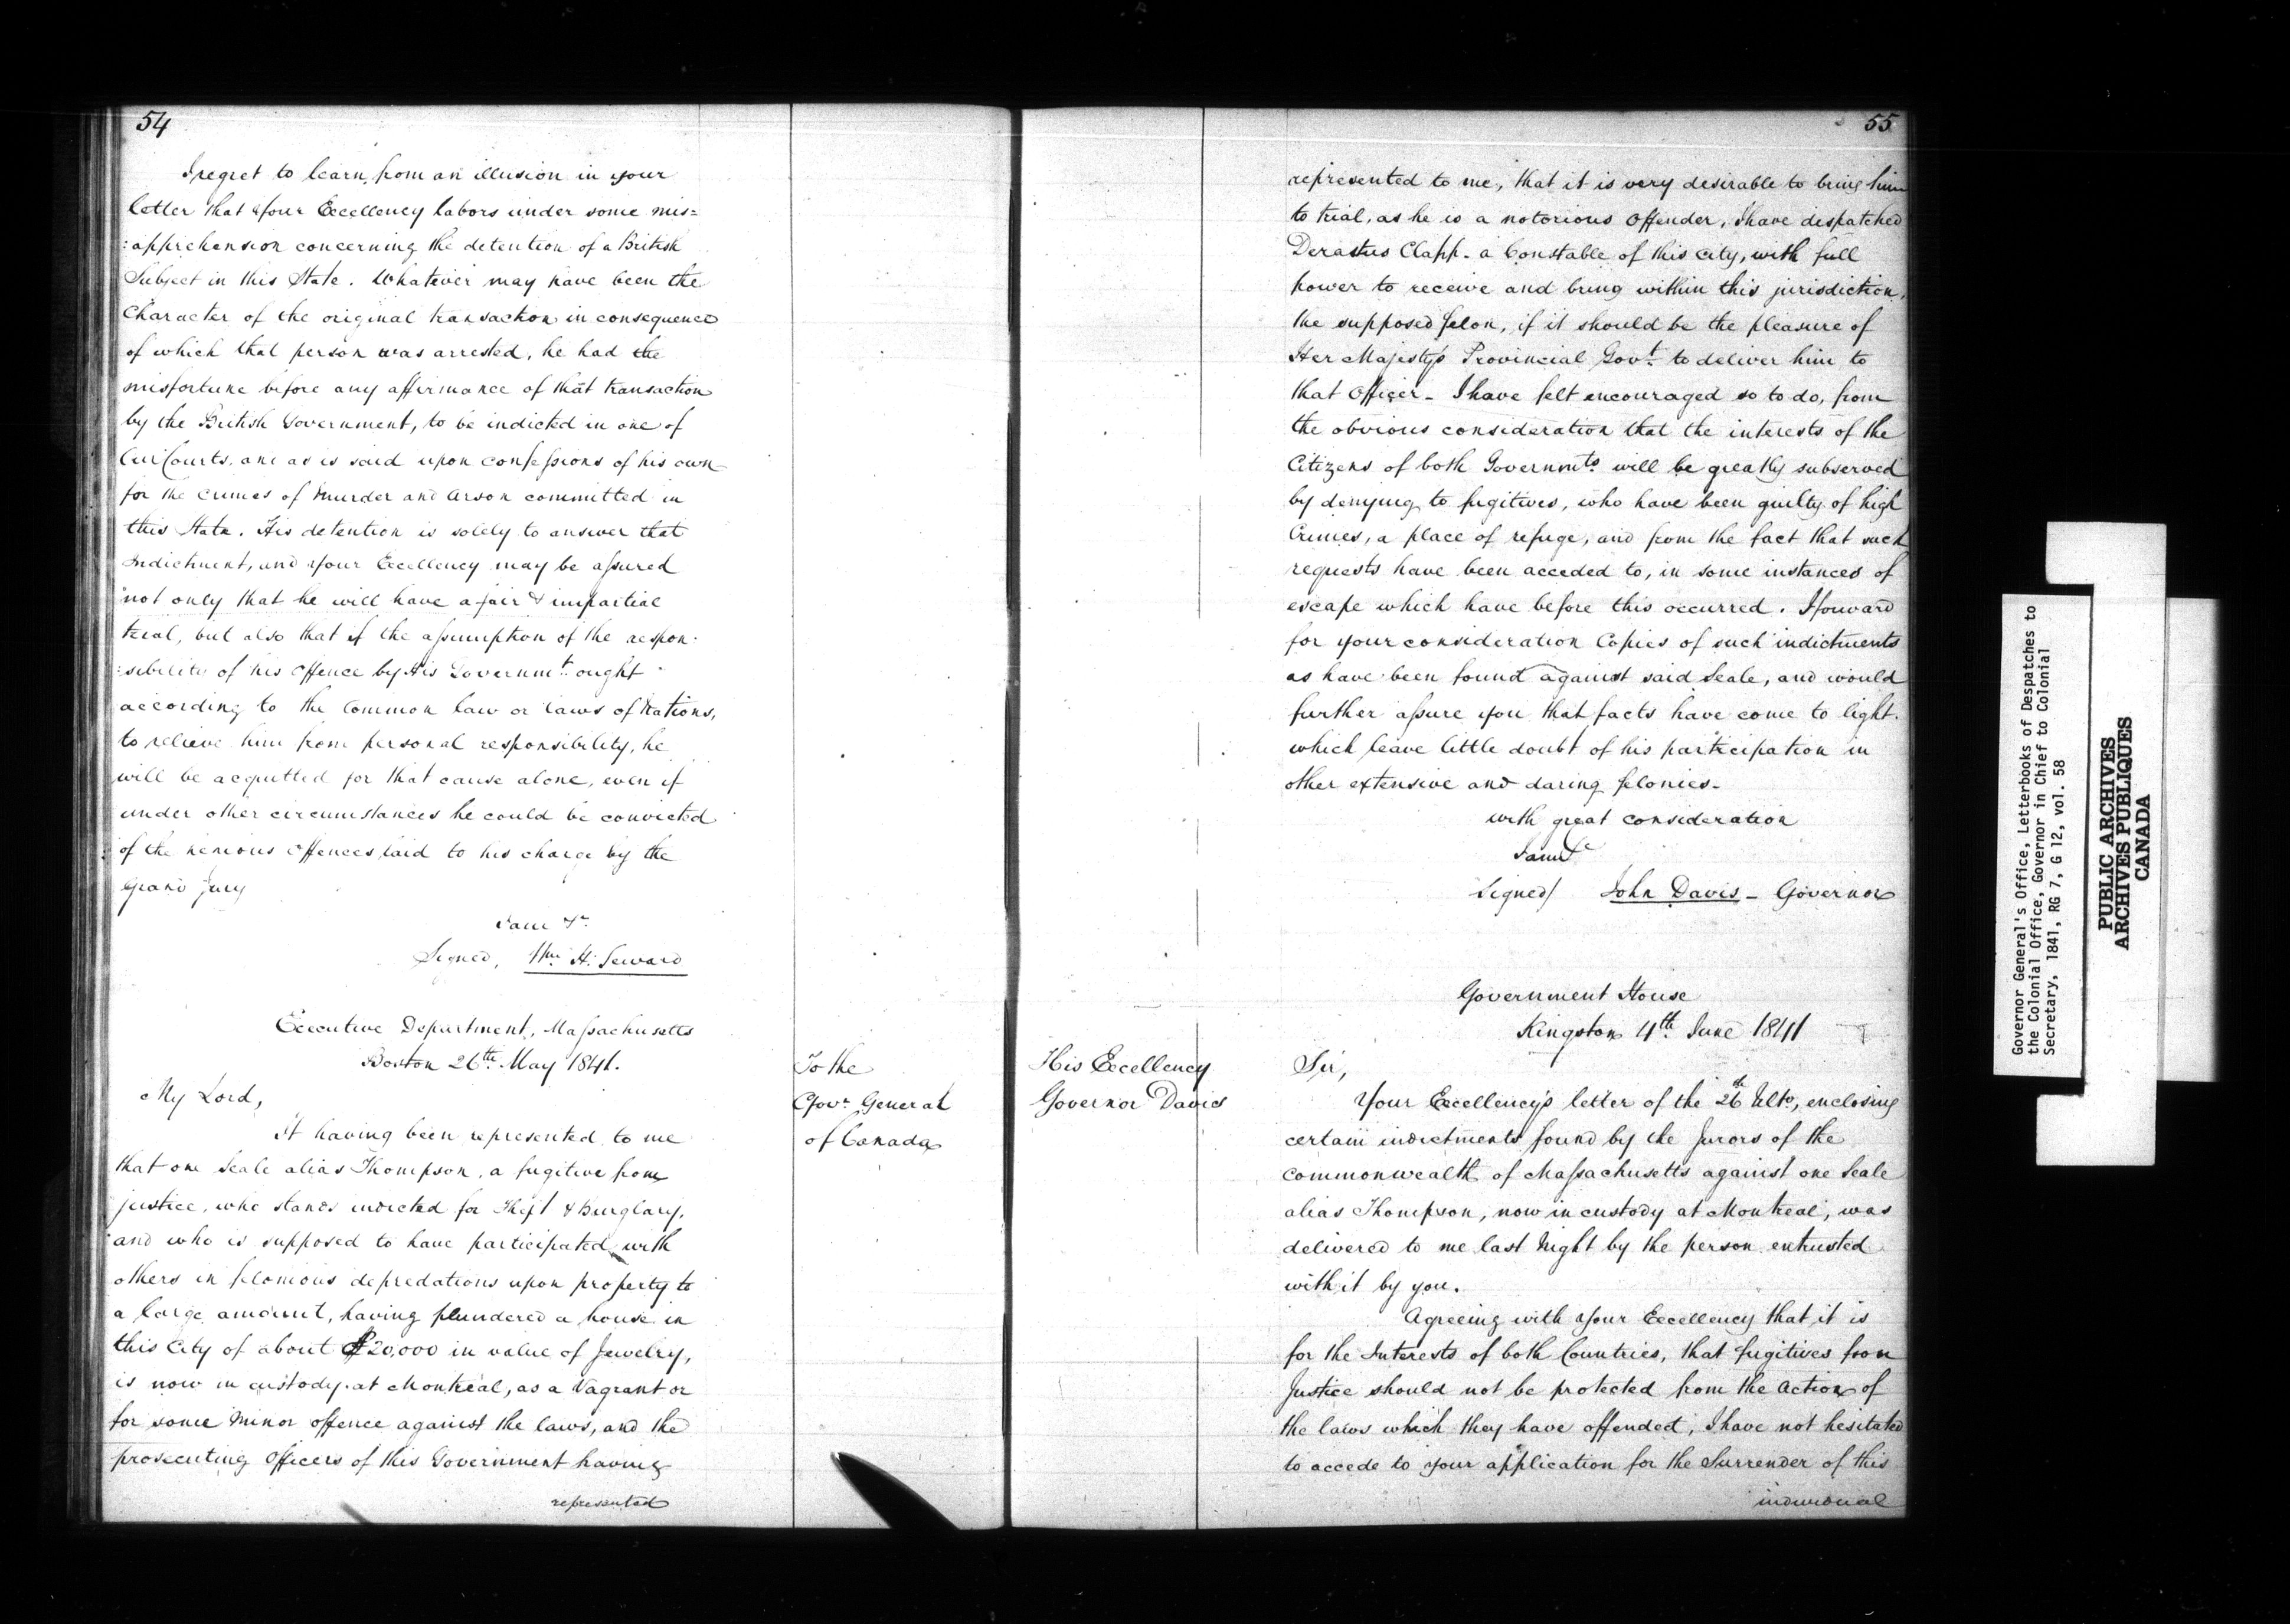 54
I regret to learn, from an illusion in your
letter that Your Excellency labors under some mis=
:apprehension concerning the detention of a British
Subject in this State. Whatever may have been the
Character of the original transaction in consequence
of which that person was arrested, he had the
misfortune before any affirmance of that transaction
by the British Government, to be indicted in one of
Our Courts, and as is said upon confessions of his own
for the crimes of Murder and Arson committed in
this State. His detention is solely to answer that
Indictment, and Your Excellency may be assured
not only that he will have a fair & impartial
trial, but also that if the assumption of the respon-
:sibility of his Offence by His Governmt. ought
according to the Common law or laws of Nations,
to relieve him from personal responsibility, he
will be acquitted for that cause alone, even if
under other circumstances he could be convicted
of the heinous Offences laid to his charge by the
Grand Jury
I am &c
Signed, Wm. H. Seward
Executive Department, Massachusetts
Boston 26th. May 1841.
To the
Govr. General
of Canada
My Lord,
It having been represented to me
that one Seale alias Thompson, a fugitive from
justice, who stands indicted for Theft & Burglary,
and who is supposed to have participated with
others in felonious depredations upon property to
a large amount, having plundered a house in
this City of about $20,000 in value of Jewelry,
is now in custody at Montreal, as a Vagrant or
for some Minor offence against the laws, and the
prosecuting Officers of this Government having
represented
55
represented to me, that it is very desirable to bring him
to trial, as he is a notorious Offender, I have despatched
Derastus Clapp - a Constable of this City, with full
power to receive and bring within this jurisdiction,
the supposed felon, if it should be the pleasure of
Her Majesty's Provincial Govt. to deliver him to
that Officer - I have felt encouraged so to do, from
the obvious consideration that the interests of the
Citizens of both Governmts. will be greatly subserved
by denying to fugitives, who have been guilty of high
Crimes, a place of refuge, and from the fact that such
requests have been acceded to, in some instances of
escape which have before this occurred. I forward
for your consideration Copies of such indictments
as have been found against said Seale, and would
further assure you that facts have come to light.
which leave little doubt of his participation in
other extensive and daring felonies -
with great consideration
I am &c
Signed/ John Davis - Governor
Government House
Kingston 4th. June 1841
His Excellency
Governor Davis
Sir,
Your Excellency's letter of the 26th Ulto., enclosing
certain indictments found by the Jurors of the
Commonwealth of Massachusetts against one Seale
alias Thompson, now in custody at Montreal, was
delivered to me last Night by the person entrusted
with it by you.
Agreeing with Your Excellency that it is
for the Interests of both Countries, that fugitives from
Justice should not be protected from the Action of
the laws which they have offended, I have not hesitated
to accede to your application for the Surrender of this
individual
Governor General's Office, Letterbooks of Despatches to
the Colonial Office, Governor in Chief to Colonial
Secretary, 1841, RG 7, G 12, vol. 58
PUBLIC ARCHIVES
ARCHIVES PUBLIQUES
CANADA